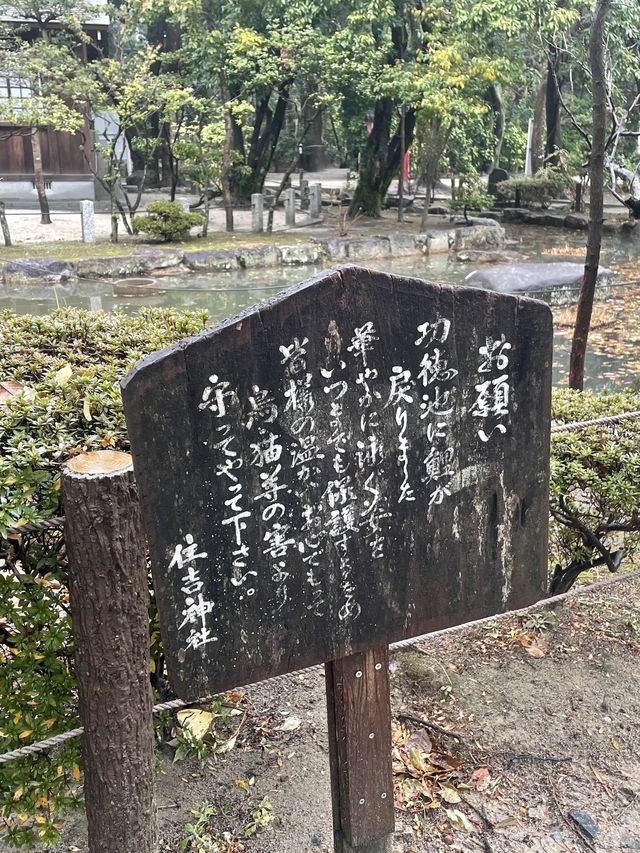 お願い
功徳池に鯉が
戻りました
華やかに泳ぐ姿を
いつまでも保護するため
皆様の温かいお心でもって
烏猫等の害より
守ってやって下さい。
住吉神社